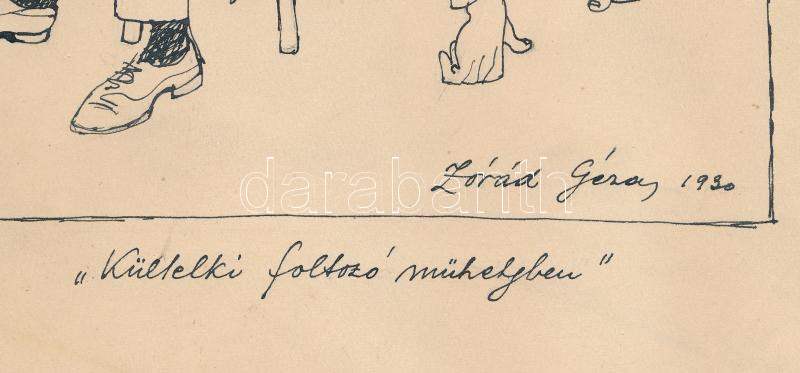 Zórád Géza, 1930
darabanth
„Kültelki foltozó műhelyben”